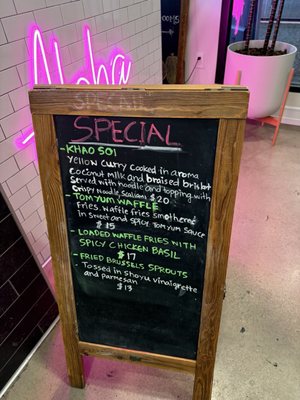 Aloha
SPECIAL
SPECIAL
-KHAO SOI
Yellow curry cooked in aroma
coconut milk and braised brisket
Served with noodle and topping with
crispy noodle, scallions $20
- TOM YUM WAFFLE
fries. Waffle fries smothered
in sweet and spicy Tom Yum sauce
$15
- LOADED WAFFLE FRIES WITH
SPICY CHICKEN BASIL
$17
- FRIED BRUSSELS SPROUTS
Tossed in shoyu vinaigrette
and parmesan
$13